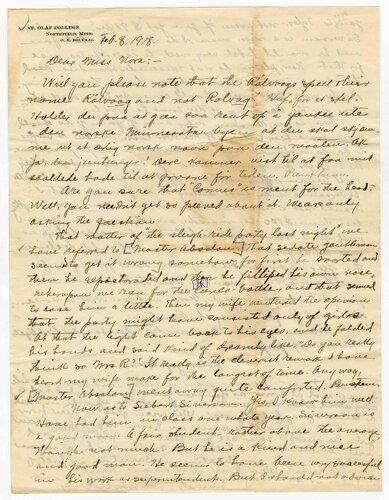 ST. OLAF COLLEGE
NORTHFIELD, MINN.
O. E. ROLVAAG
Feb. 8, 1918.
Dear Miss Nora:-
Will you please note that the Rölvaags spell their
name Rölvaag and not Rolvag.
i den norske Minnesota byen at du skal
Are you sure that "Comus" is meant for the head?
Well, you needn't get so peeved about it. We are only
asking the question.
That matter of the sleigh-ride party last night we
have referred to [Master Absalon] that sedate gentleman
seemed to get it wrong somehow, for first he snorted and
then he expostorated and then he filliped his own nose,
whereupon we ran for the bottle, and that seemed
to ease him a little. Then my wife ventured the opinion
that the party might have consisted only of girls.
At that the light came back to his eyes. And he folded
his hands and said kind of dreamy like: "Do you really
think so Mrs R?" It really is the cleverest remark I have
heard my wife make for the longest of time. Any way,
[Master Absalon] went away quite comforted.
Now as to Siebart Simonson. Yes I know him well.
Have had him in class one whole year. Simonson is
a good man. A fair student, rather above the average,
though not much. But he is a kind and nice
and good man. He seems to have been very successful
in his work as superintendent. But I should not advise